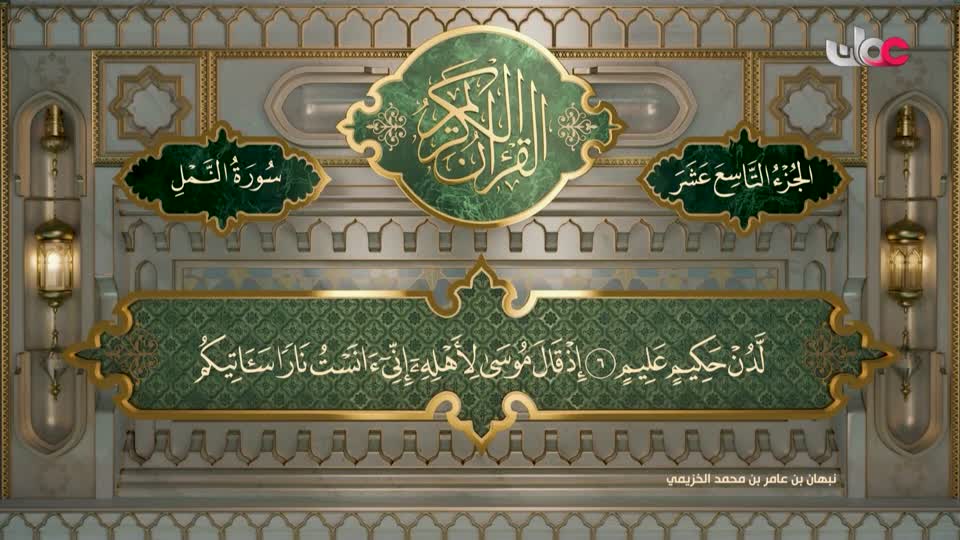 عمان
القرآن الكريم
الجُزْءُ التَّاسِعَ عَشَرَ
سُورَةُ النَّمْلِ
لَّدُنْ حَكِيمٍ عَلِيمٍ ٦ إِذْ قَالَ مُوسَىٰ لِأَهْلِهِۦٓ إِنِّىٓ ءَانَسْتُ نَارًا سَـَٔاتِيكُم
نبهان بن عامر بن محمد الخزيمي